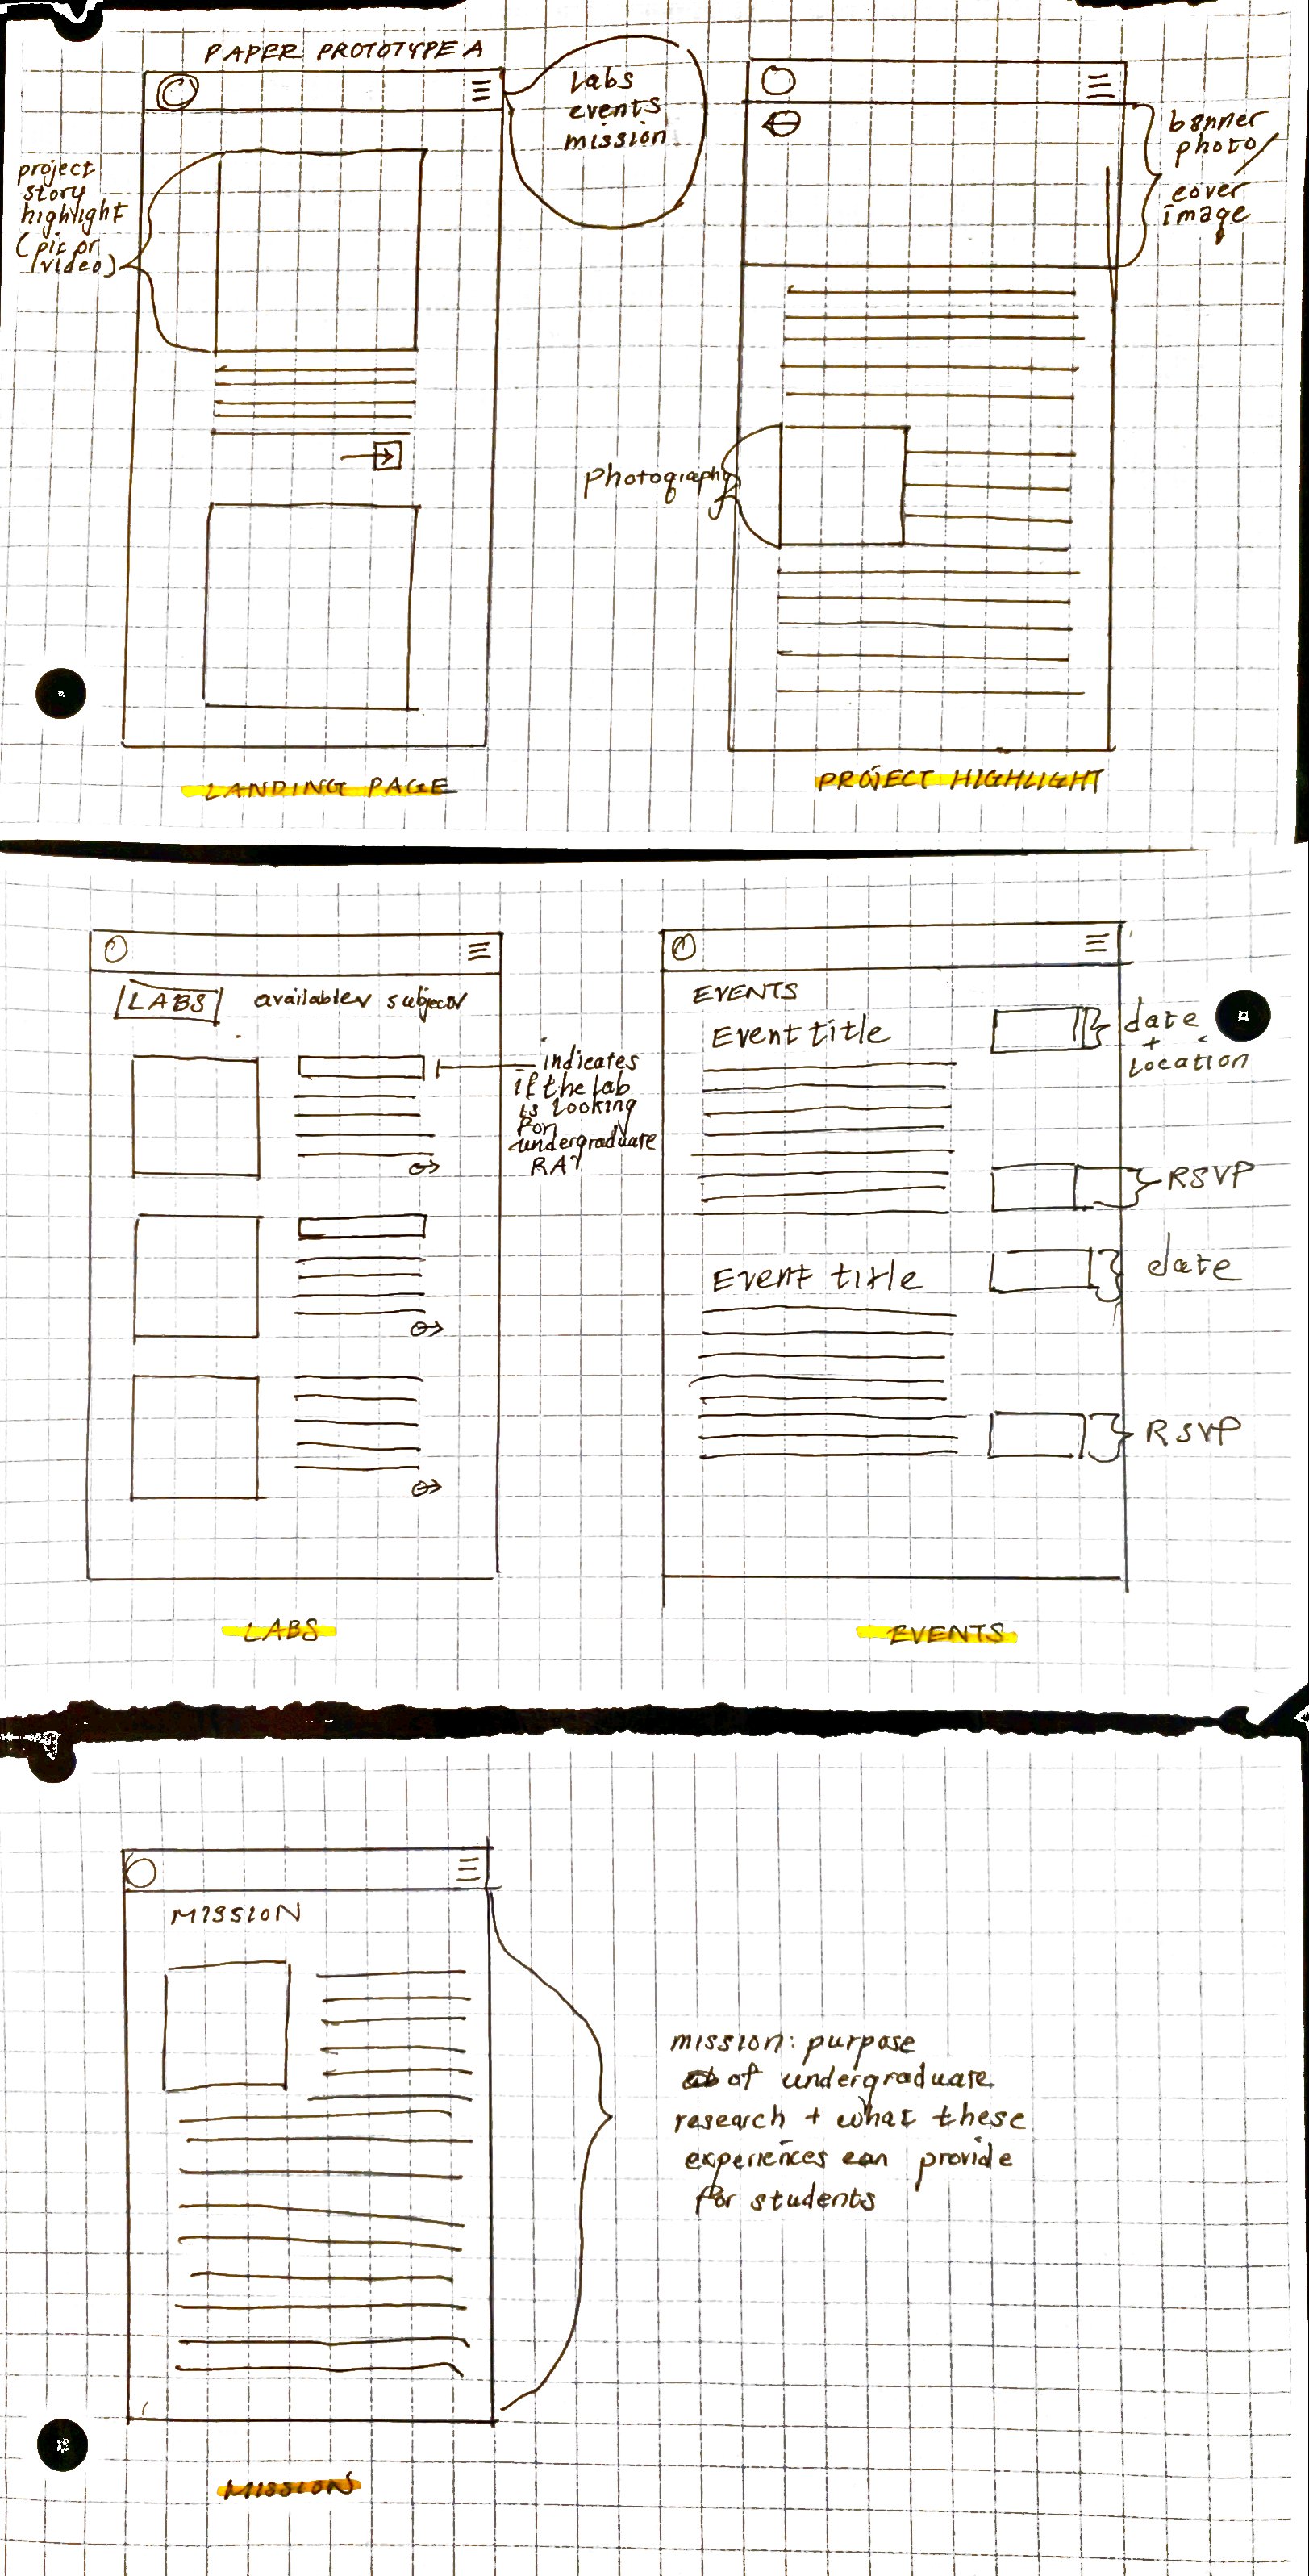 PAPER PROTOTYPE A
labs
events
mission
project
story
highlight
(pic or
video)
banner
photo/
cover
image
photography
LANDING PAGE
PROJECT HIGHLIGHT
LABS
indicates
if the lab
is looking
for
undergraduate
EVENTS
Event title
date
+
location
RSVP
Event title
date
RSVP
LABS
EVENTS
MISSION
mission: purpose
of undergraduate
research + what these
experiences can provide
for students
MISSION